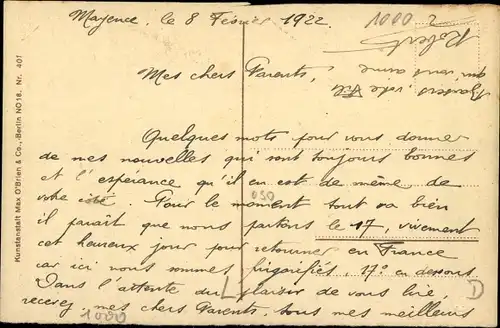 Mayence, le 8 Février 1922.
1000 2
Mes chers Parents,
Quelques mots pour vous donner
de mes nouvelles qui sont toujours bonnes
et l'espérance qu'il en est de même de
votre côté. Pour le moment tout va bien
il paraît que nous partons le 17, vivement
cet heureux jour pour retourner en France
car ici nous sommes frigorifiés, 17° en dessous
Dans l'attente du plaisir de vous lire
recevez mes chers Parents, tous mes meilleurs
baisers votre fils
qui vous aime
Robert
050
L D
1000
Kunstanstalt Max O'Brien & Co., Berlin NO18. Nr. 401